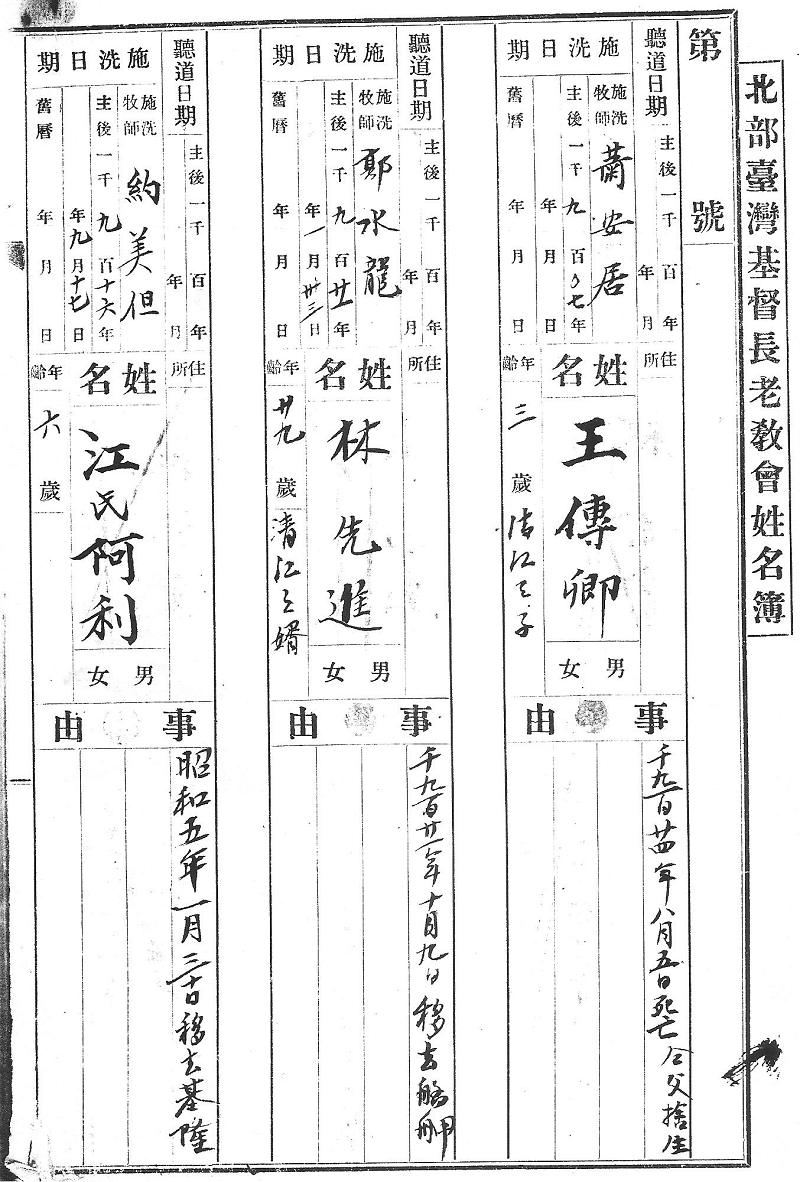 北部臺灣基督長老教會姓名簿
第 號
聽道日期
主後一千 百 年
年 月
住所
施洗日期
施洗牧師 蕭安居
主後一千九百〇七年
年 月 日
舊曆 年 月 日
姓名
王傳卿
年齡 三歲 清江之子
男 女
事由
千九百廿四年八月五日死亡 仝父捨生
聽道日期
主後一千 百 年
年 月
住所
施洗日期
施洗牧師 鄭水龍
主後一千九百廿年
年一月廿三日
舊曆 年 月 日
姓名
林先進
年齡 廿九歲 清江之婿
男 女
事由
千九百廿一年十月九日移去艋舺
聽道日期
主後一千 百 年
年 月
住所
施洗日期
施洗牧師 約美但
主後一千九百十六年
年九月十七日
舊曆 年 月 日
姓名
江氏阿利
年齡 六歲
男 女
事由
昭和五年一月三十日移去基隆